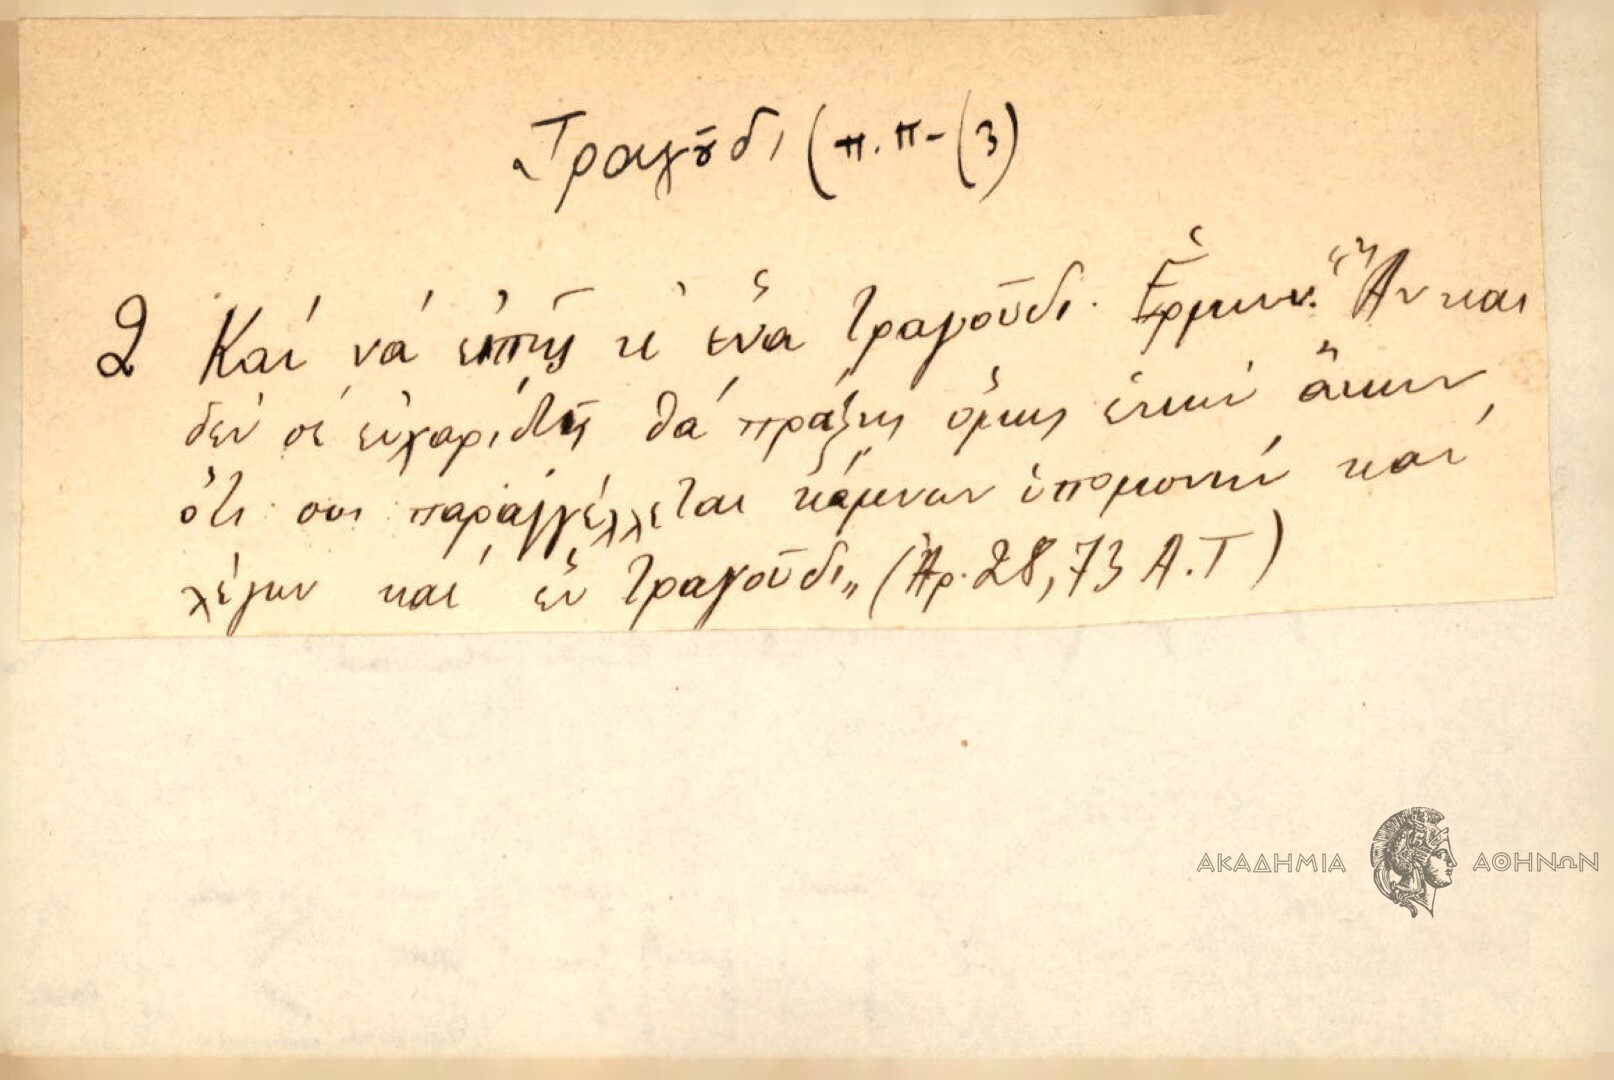 Τραγȣ͂δι (π.π-(3)
2 Καί νά εἰπῇς κ' ἕνα τραγοῦδι. Ἑρμην. "Ἄν και
δέν σέ εὐχαριστῇ θά πράξῃς ὅμως ἐκεῖ ἄκων
ὅτι σοι παραγγέλλεται κάμνων ὑπομονήν καί
λέγων καί ἕν τραγοῦδι„ (Ἀρ. 28, 73 Α.Τ)
ΑΚΑΔΗΜΙΑ ΑΘΗΝΩΝ